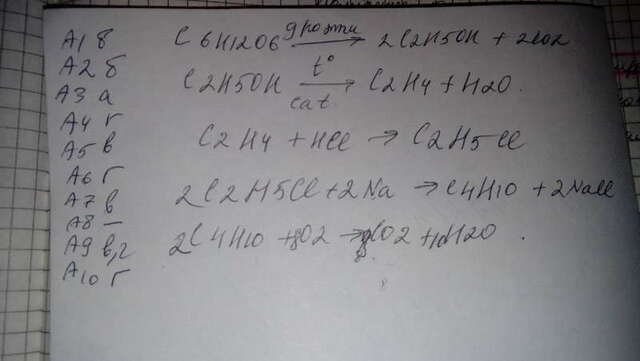 А1 б
А2 б
А3 а
А4 г
А5 в
А6 г
А7 в
А8 —
А9 в,г
А10 г
C6H12O6 дрожжи → 2C2H5OH + 2CO2
C2H5OH t° cat. → C2H4 + H2O.
C2H4 + HCl → C2H5Cl
2C2H5Cl + 2Na → C4H10 + 2NaCl
2C4H10 + O2 → CO2 + H2O.